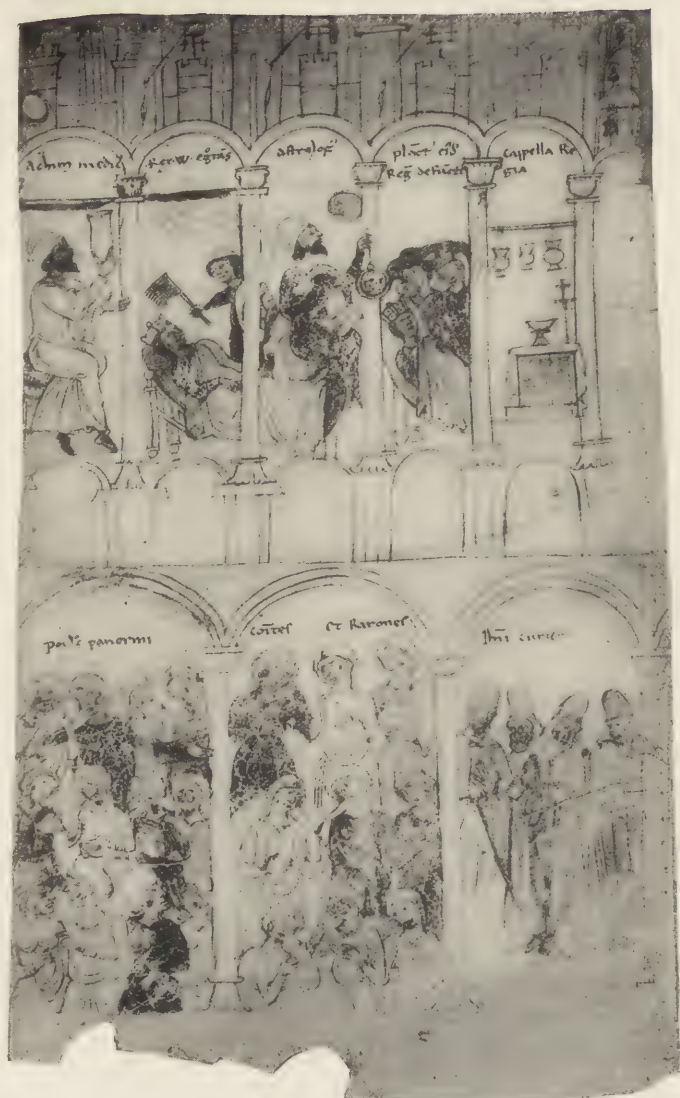 Achim medic
Rex W. egrotās
astrolog
plāct' ei'
Reg̃ defūct
Cappella Re
gia
panormi
Coītes et Barones
Dñi curie